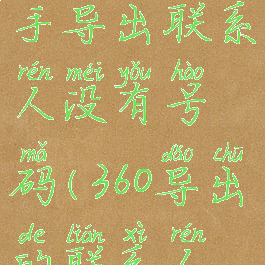 手导出联系
rén méi yǒu hào
人没有号
mǎ dǎo chū
码(360导出
de lián xì rén
的联系人